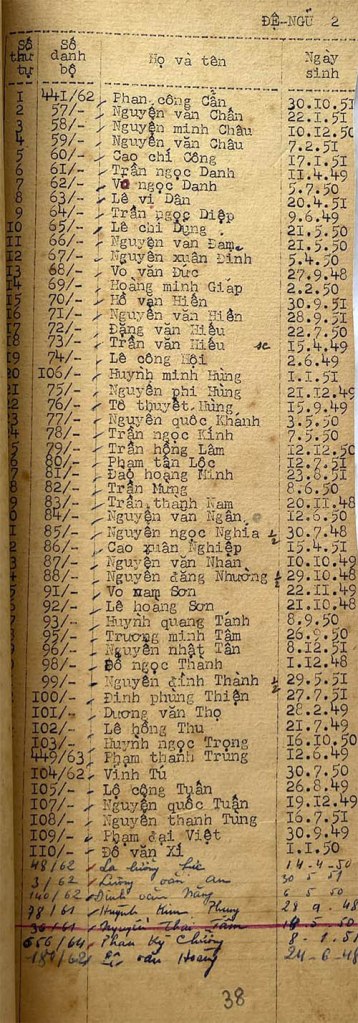 ĐỆ-NGŨ 2
Số thứ tự Số danh bộ Họ và tên Ngày sinh
1 441/62 Phan công Cẩn 30.10.51
2 57/- Nguyễn văn Chẩn 22.1.51
3 58/- Nguyễn minh Châu 10.12.50
4 59/- Nguyễn văn Châu 7.2.51
5 60/- Cao chí Công 17.1.51
6 61/- Trần ngọc Danh 11.4.49
7 62/- Võ ngọc Danh 5.7.50
8 63/- Lê vi Dân 20.4.51
9 64/- Trần ngọc Diệp 9.6.49
10 65/- Lê chí Dụng 21.5.50
11 66/- Nguyễn văn Đạm 21.5.50
12 67/- Nguyễn xuân Đính 5.4.50
13 68/- Võ văn Đức 27.9.48
14 69/- Hoàng minh Giáp 2.2.50
15 70/- Hồ văn Hiền 30.9.51
16 71/- Nguyễn văn Hiển 28.9.51
17 72/- Đặng văn Hiếu 22.7.50
18 73/- Trần văn Hiếu sc 15.4.49
19 74/- Lê công Hội 2.6.49
20 106/- Huỳnh minh Hùng 1.1.51
75/- Nguyễn phi Hùng 21.12.49
76/- Tô thuyết Hùng 15.9.49
77/- Nguyễn quốc Khánh 3.5.50
78/- Trần ngọc Kính 7.5.50
79/- Trần hồng Lâm 12.12.50
80/- Phạm tấn Lộc 12.7.51
81/- Đào hoàng Minh 23.8.51
82/- Trần Mừng 8.6.50
83/- Trần thanh Nam 20.11.48
84/- Nguyễn văn Ngân 12.6.50
85/- Nguyễn ngọc Nghĩa ½ 30.7.48
86/- Cao xuân Nghiệp 15.4.51
87/- Nguyễn văn Nhan 10.10.49
88/- Nguyễn đăng Nhường ½ 29.10.48
91/- Võ nam Sơn 22.11.49
92/- Lê hoàng Sơn 21.10.48
93/- Huỳnh quang Tánh 8.9.50
95/- Trương minh Tâm 26.9.50
96/- Nguyễn nhật Tân 8.12.51
98/- Đỗ ngọc Thanh 1.12.48
99/- Nguyễn đình Thành ½ 29.5.51
100/- Đinh phùng Thiện 27.7.51
101/- Dương văn Thọ 28.2.49
102/- Lê hồng Thu 21.7.49
103/- Huỳnh ngọc Trọng 16.10.50
449/63 Phạm thành Trung 12.6.49
104/62 Vĩnh Tú 30.7.50
105/- Lô công Tuấn 26.8.49
107/- Nguyễn quốc Tuấn 19.12.49
108/- Nguyễn thanh Tùng 16.7.51
109/- Phạm đại Việt 30.9.49
110/- Đỗ văn Xí 1.1.50
48/62 La lương 14-4-50
3/62 Lương văn an 30 5 51
140/62 Đinh văn Năng 6 5 50
78/61 Huỳnh Kim Phụng 28 9 48
36/61 Nguyễn Thái Tâm 18.5.50
656/64 Phan Kỳ Chưởng 8-1.51
180/62 Lê văn Hoàng 24-6-48
38